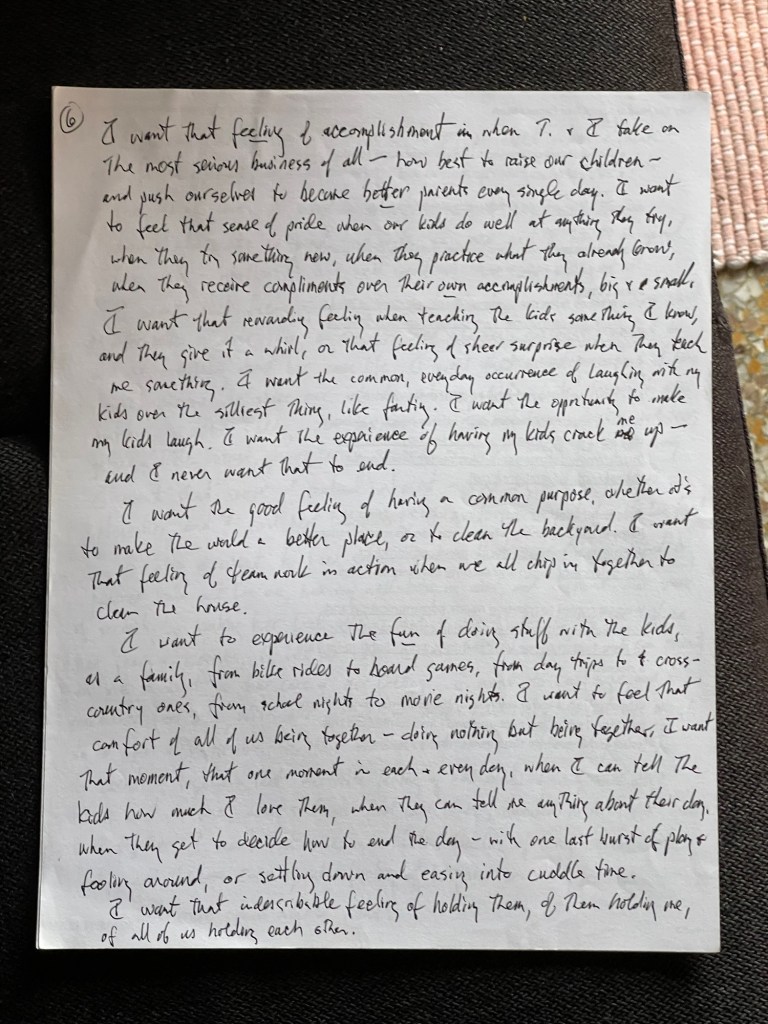 6
I want that feeling of accomplishment in when T. & I take on
the most serious business of all — how best to raise our children —
and push ourselves to become better parents every single day. I want
to feel that sense of pride when our kids do well at anything they try,
when they try something new, when they practice what they already know,
when they receive compliments over their own accomplishments, big & small.
I want that rewarding feeling when teaching the kids something I know,
and they give it a whirl, or that feeling of sheer surprise when they teach
me something. I want the common, everyday occurrence of laughing with my
kids over the silliest thing, like farting. I want the opportunity to make
my kids laugh. I want the experience of having my kids crack me up —
and I never want that to end.
I want the good feeling of having a common purpose, whether it's
to make the world a better place, or to clean the backyard. I want
that feeling of teamwork in action when we all chip in together to
clean the house.
I want to experience the fun of doing stuff with the kids,
as a family, from bike rides to board games, from day trips to cross-
country ones, from school nights to movie nights. I want to feel that
comfort of all of us being together — doing nothing but being together. I want
that moment, that one moment in each & every day, when I can tell the
kids how much I love them, when they can tell me anything about their day,
when they get to decide how to end the day — with one last burst of play &
fooling around, or settling down and easing into cuddle time.
I want that indescribable feeling of holding them, of them holding me,
of all of us holding each other.